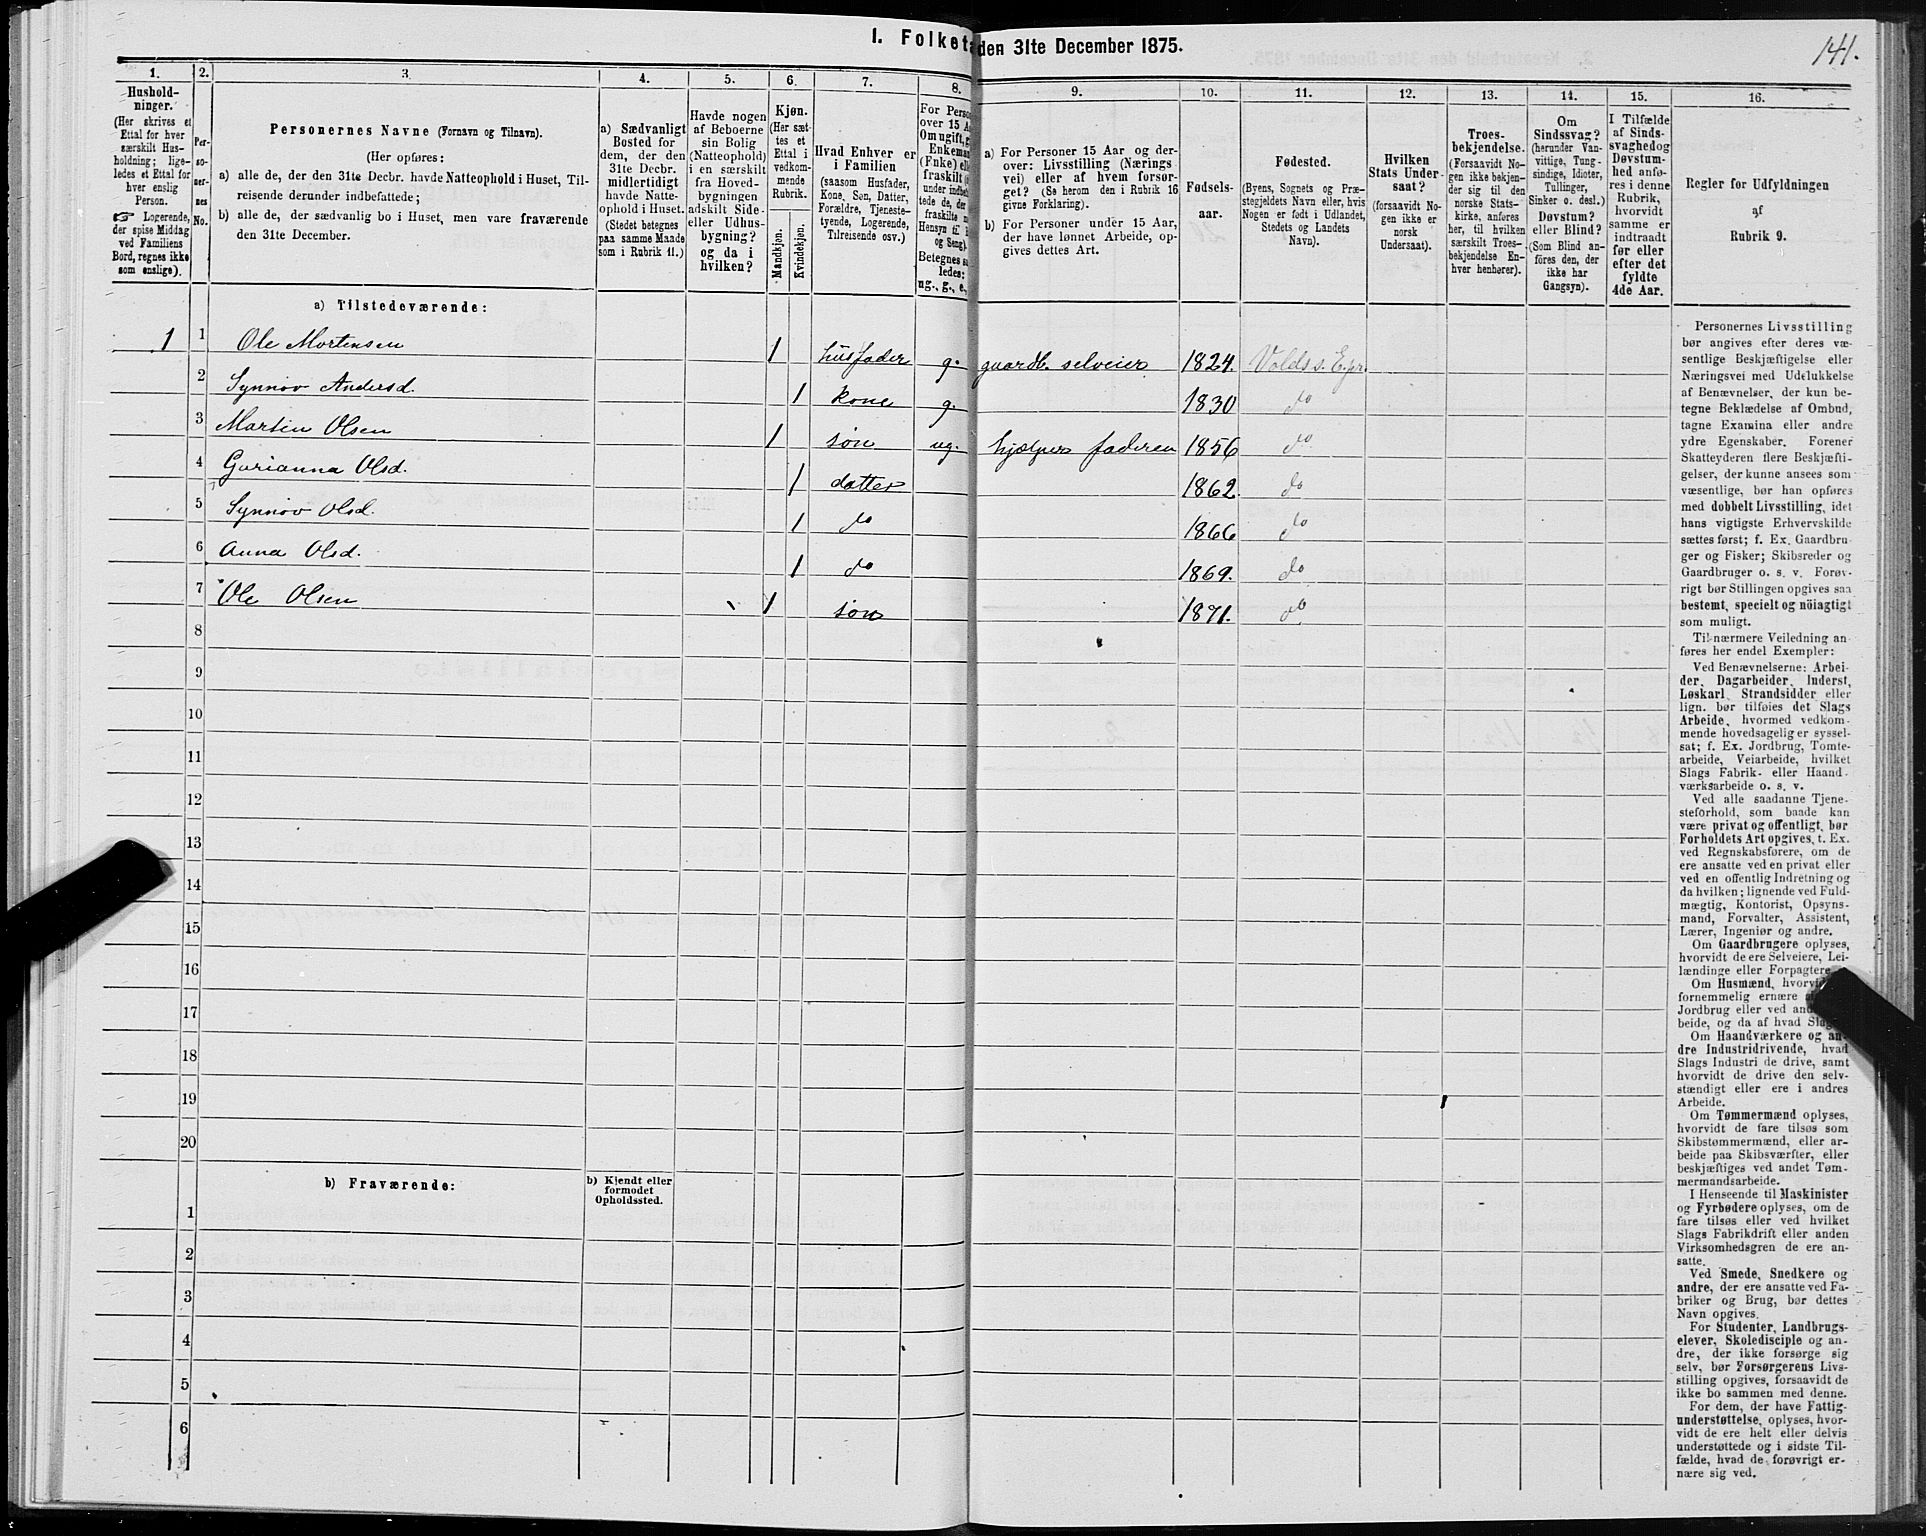 I. Folketæ
den 31te December 1875.
141.
1.
2.
3.
4.
5.
6.
7.
8.
9.
10.
11.
12.
13.
14.
15.
16.
Hushold-
ninger.
(Her skrives et
Ettal for hver
særskilt Hus-
holdning; lige-
ledes et Ettal for
hver enslig
Person.
☞ Logerende,
der spise Middag
ved Familiens
Bord, regnes ikke
som enslige).
Per-
so-
ner-
nes
No.
Personernes Navne (Fornavn og Tilnavn).
(Her opføres:
a) alle de, der den 31te Decbr. havde Natteophold i Huset, Til-
reisende derunder indbefattede;
b) alle de, der sædvanlig bo i Huset, men vare fraværende
den 31te December.
a) Sædvanligt
Bosted for
dem, der den
31te Decbr.
midlertidigt
havde Natte-
ophold i Huset.
(Stedet betegnes
paa samme Maade
som i Rubrik 11.)
Havde nogen
af Beboerne
sin Bolig
(Natteophold)
i en særskilt
fra Hoved-
bygningen
adskilt Side-
eller Udhus-
bygning?
og da i
hvilken?
Kjøn.
(Her sæt-
tes et
Ettal i
vedkom-
mende
Rubrik.
Mandkjøn.
Kvindekjøn.
Hvad Enhver er
i Familien
(saasom Husfader,
Kone, Søn, Datter,
Forældre, Tjeneste-
tyende, Logerende,
Tilreisende osv.)
For Perso
over 15 A
Om ugift, g
Enkeman
(Fnke) ell
fraskilt
under indbef
tede de, der
fraskilte
Hensyn til
og Seng).
Betegnes sa
ledes:
ug., g., e.,
a) For Personer 15 Aar og der-
over: Livsstilling (Nærings
vei) eller af hvem forsør-
get? (Se herom den i Rubrik 16
givne Forklaring).
b) For Personer under 15 Aar,
der have lønnet Arbeide, op-
gives dettes Art.
Fødsels-
aar.
Fødested.
(Byens, Sognets og Præ-
stegjeldets Navn eller, hvis
Nogen er født i Udlandet,
Stedets og Landets
Navn).
Hvilken
Stats Under-
saat?
(forsaavidt No-
gen ikke er
norsk
Undersaat).
Troes-
bekjendelse.
(Forsaavidt No-
gen ikke bekjen-
der sig til den
norske Stats-
kirke, anføres
her, til hvilken
særskilt Troes-
bekjendelse En-
hver henhører).
Om
Sindssvag?
(herunder Van-
vittige, Tung-
sindige, Idioter,
Tullinger,
Sinker o. desl.)
Døvstum?
eller Blind?
(Som Blind an-
føres den, der
ikke har
Gangsyn).
I Tilfælde
af Sinds-
svaghed og
Døvstum-
hed anfø-
res i denne
Rubrik,
hvorvidt
samme er
indtraadt
før eller
efter det
fyldte
4de Aar.
Regler for Udfyldningen
af
Rubrik 9.
a) Tilstedeværende:
1 1 Ole Mortensen 1 husfader g. gaardb. selveier 1824. Volds s. E. pr.
2 Synnøv Andersd. 1 kone g. 1830 do
3 Martin Olsen 1 søn ug. hjælper faderen 1856 do
4 Gurianna Olsd. 1 datter 1862. do
5 Synnøv Olsd. 1 do 1866 do
6 Anna Olsd. 1 do 1869. do
7 Ole Olsen 1 søn 1871. do
8
9
10
11
12
13
14
15
16
17
18
19
20
b) Fraværende:
b) Kjendt eller
formodet
Opholdssted.
1
2
3
4
5
6
Personernes Livsstilling
bør angives efter deres væ-
sentlige Beskjæftigelse eller
Næringsvei med Udelukkelse
af Benævnelser, der kun be-
tegne Beklædelse af Ombud,
tagne Examina eller andre
ydre Egenskaber. Forener
Skatteyderen flere Beskjæfti-
gelser, der kunne ansees som
væsentlige, bør han opføres
med dobbelt Livsstilling, idet
hans vigtigste Erhvervskilde
sættes først; f. Ex. Gaardbru-
ger og Fisker; Skibsreder og
Gaardbruger o. s. v. Forøv-
rigt bør Stillingen opgives saa
bestemt, specielt og nöiagtigt
som muligt.
Til nærmere Veiledning an-
føres her endel Exempler:
Ved Benævnelserne: Arbei-
der, Dagarbeider, Inderst,
Løskarl, Strandsidder eller
lign. bør tilføies det Slags
Arbeide, hvormed vedkom-
mende hovedsagelig er syssel-
sat; f. Ex. Jordbrug, Tomte-
arbeide, Veiarbeide, hvilket
Slags Fabrik- eller Haand-
værksarbeide o. s. v.
Ved alle saadanne Tjene-
steforhold, som baade kan
være privat og offentligt, bør
Forholdets Art opgives, t. Ex.
ved Regnskabsførere, om de
ere ansatte ved en privat eller
ved en offentlig Indretning og
da hvilken; lignende ved Fuld-
mægtig, Kontorist, Opsyns-
mand, Forvalter, Assistent,
Lærer, Ingeniør og andre.
Om Gaardbrugere oplyses,
hvorvidt de ere Selveiere, Lei-
lændinge eller Forpagtere.
Om Husmænd, hvorvi
fornemmelig ernære
Jordbrug eller ved an
beide, og da af hvad Slag
Om Haandværkere og an-
dre Industridrivende, hvad
Slags Industri de drive, samt
hvorvidt de drive den selv-
stændigt eller ere i andres
Arbeide.
Om Tømmermænd oplyses,
hvorvidt de fare tilsøs som
Skibstømmermænd, eller ar-
beide paa Skibsværfter, eller
beskjæftiges ved andet Tøm-
mermandsarbeide.
I Henseende til Maskinister
og Fyrbødere oplyses, om de
fare tilsøs eller ved hvilket
Slags Fabrikdrift eller anden
Virksomhedsgren de ere an-
satte.
Ved Smede, Snedkere og
andre, der ere ansatte ved Fa-
briker og Brug, bør dettes
Navn opgives.
For Studenter, Landbrugs-
elever, Skoledisciple og an-
dre, der ikke forsørge sig
selv, bør Forsørgerens Livs-
stilling opgives, forsaavidt de
ikke bo sammen med denne.
For dem, der have Fattig-
understøttelse, oplyses, hvor-
vidt de ere helt eller delvis
understøttede og i sidste Til-
fælde, hvad de forøvrigt er-
nære sig ved.